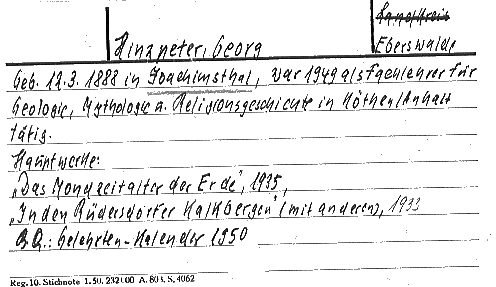 Hinzpeter, Georg
Landkreis
Eberswalde
Geb. 12.3.1888 in Joachimsthal, war 1949 als Fachlehrer für
Geologie, Mythologie u. Religionsgeschichte in Köthen/Anhalt
tätig.
Hauptwerke:
"Das Mondzeitalter der Erde", 1935,
"In den Rüdersdorfer Kalkbergen" (mit anderen), 1933
Gelehrten-Kalender 1950
Reg. 10. Stichnote 1. 50. 232000 A. 803. S. 4062